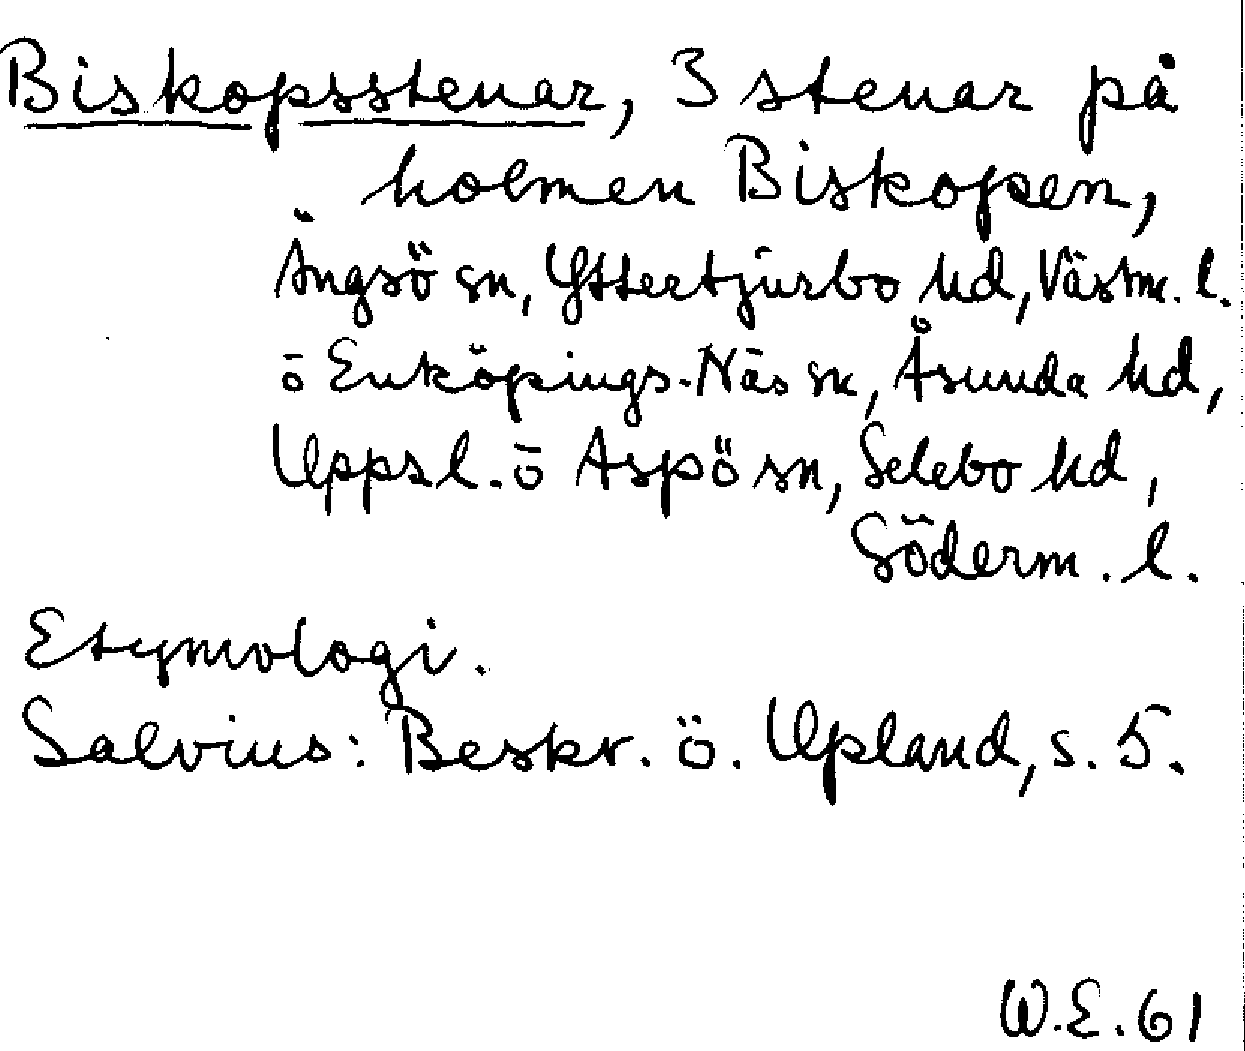 Biskopsstenar, 3 stenar på
holmen Biskopen,
Ängsö sn, Yttertjurbo hd, Västm. l.
ö Enköpings-Näs sn, Åsunda hd,
Uppsl. ö Aspö sn, Selebo hd,
Söderm. l.
Etymologi.
Salvius: Beskr. ö. Upland, s. 5.
W.E. 61